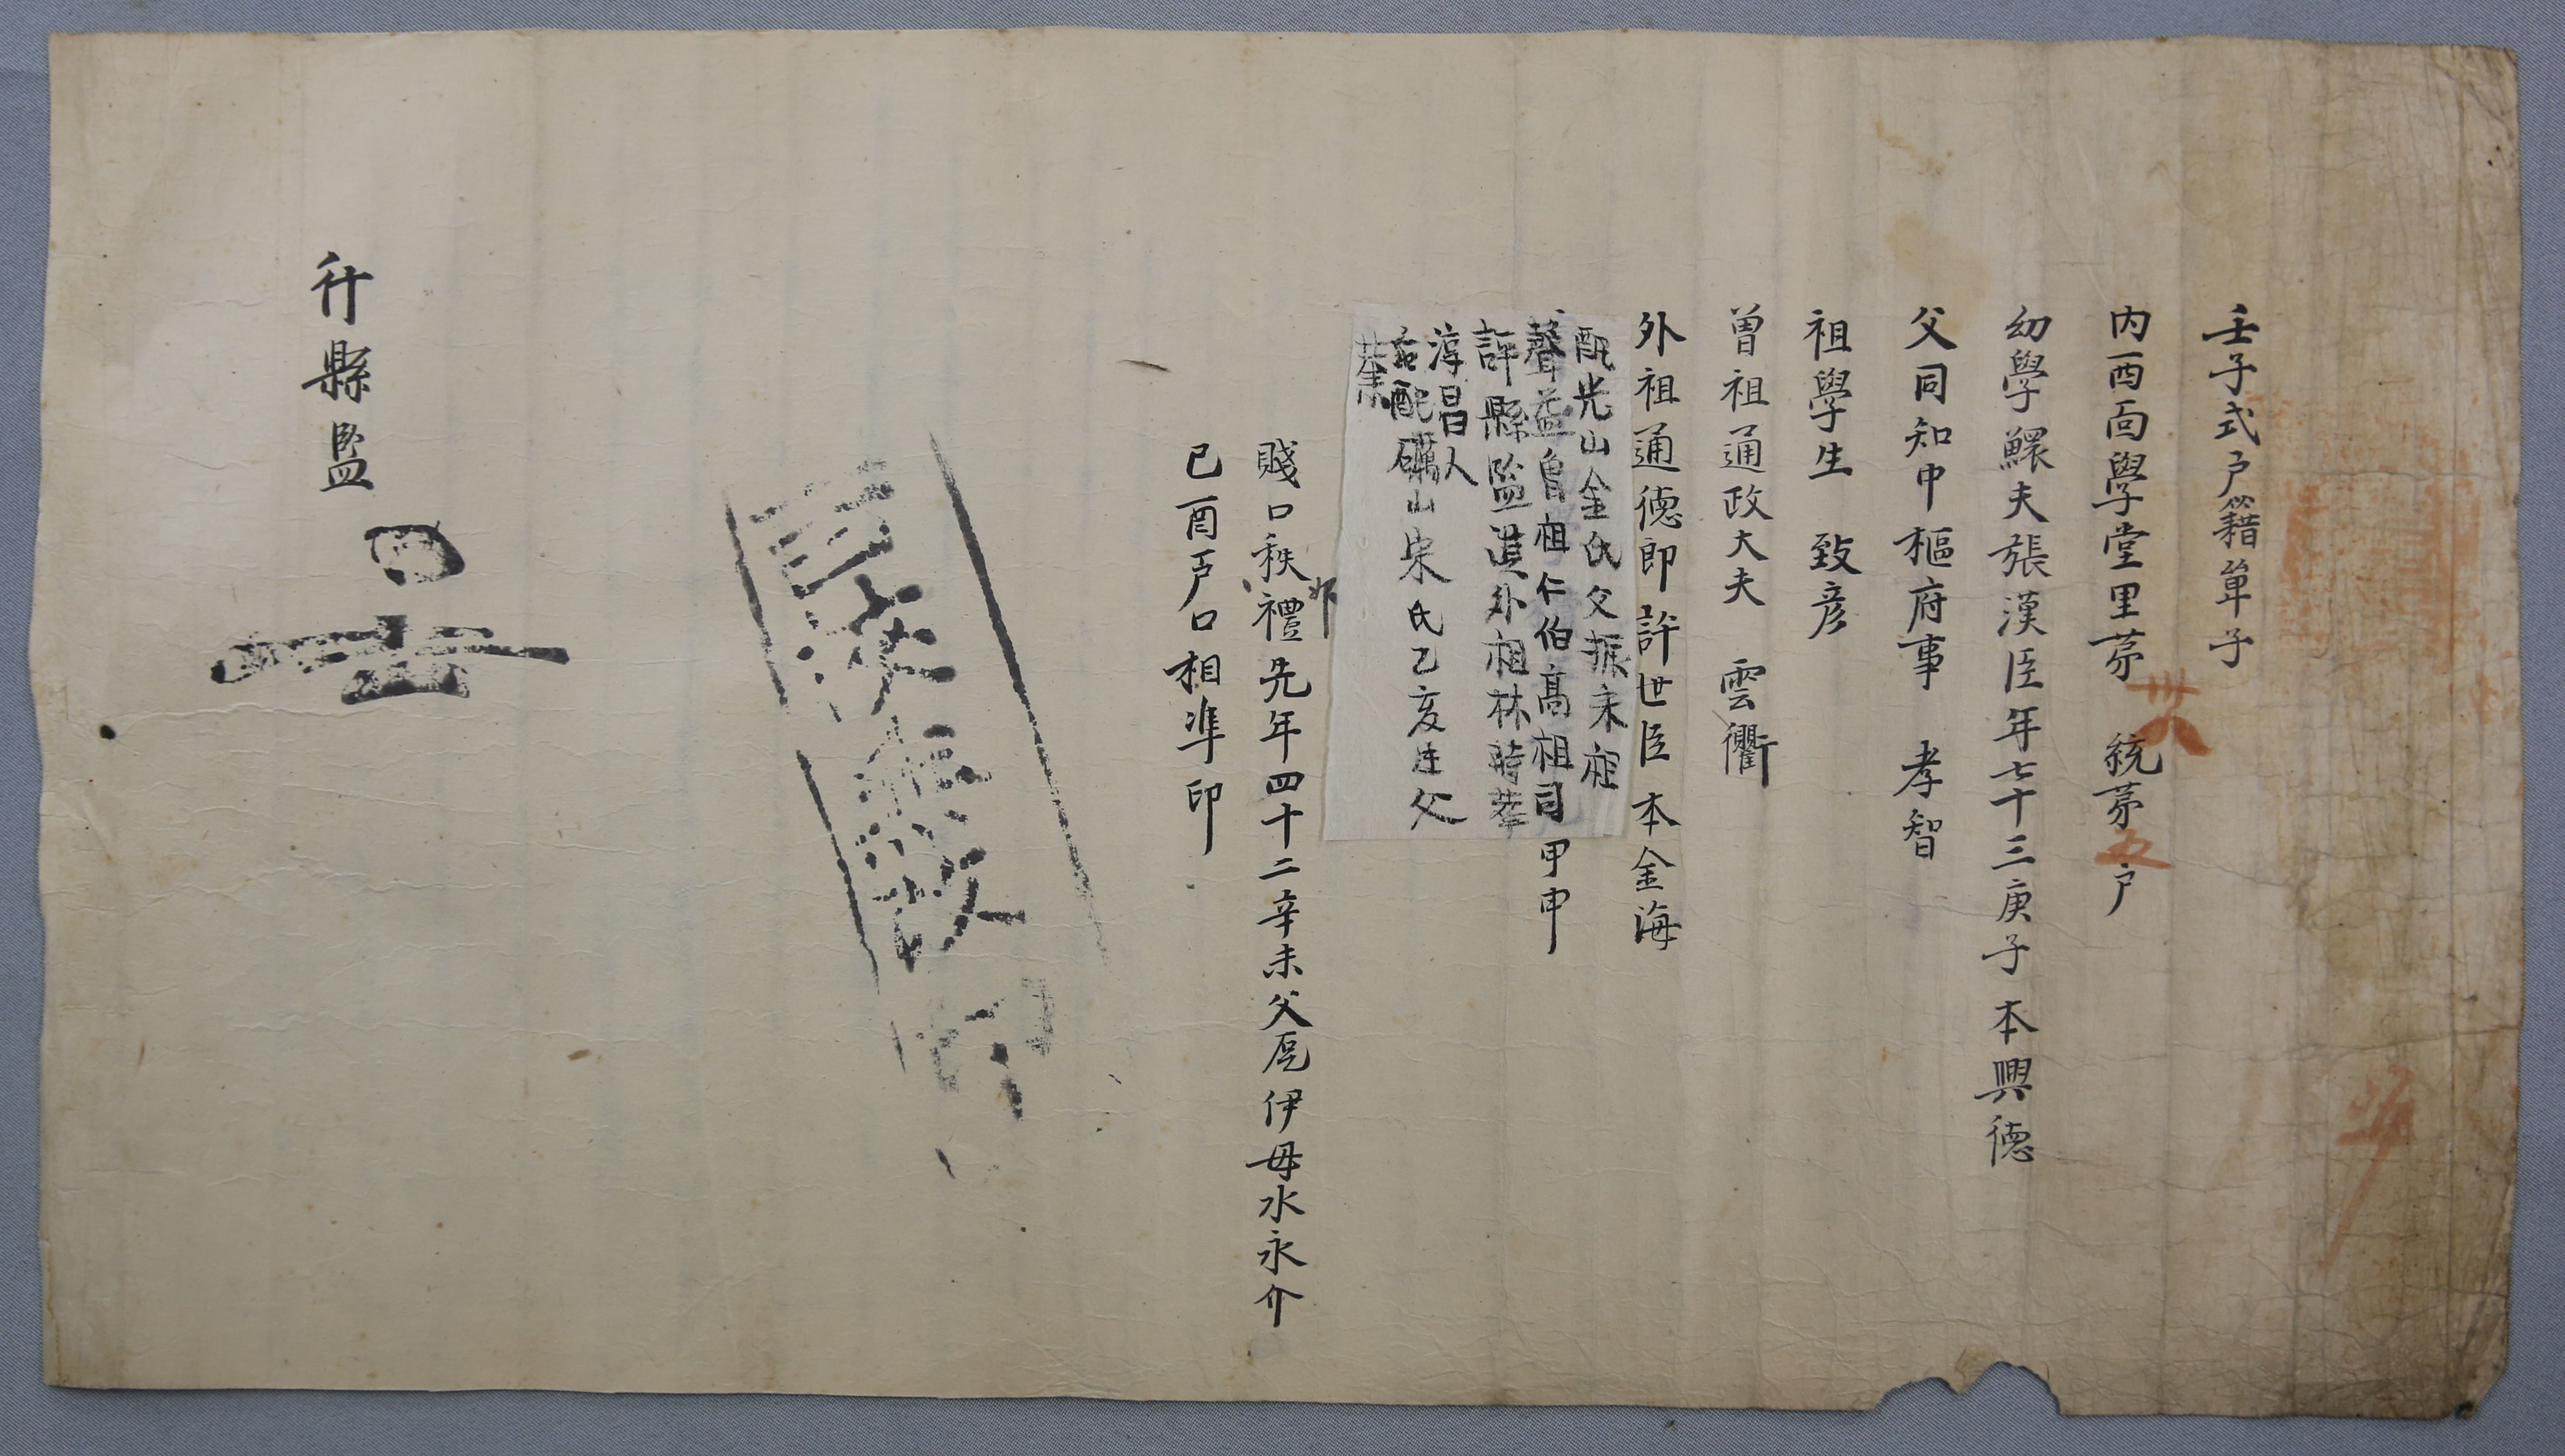 壬子式戶籍單子
內西面學堂里苐卄八統苐五戶
幼學鰥夫張漢臣年七十三庚子 本興德
父同知中樞府事 孝智
祖學生 致彦
曽祖通政大夫 雲衢
外祖通德郎許世臣 本金海
配光山金氏父振 祖
聲益曾祖仁伯高祖司甲申
許縣監 外祖林時
淳昌人
后配礪山宋氏乙亥生父
賤口秩婢禮先年四十二辛未父 伊母水永介
己酉戶口相準印
行縣監